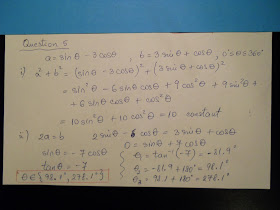 Question 5
a = sinθ - 3cosθ , b = 3sinθ + cosθ, 0°≤θ≤360°
i) a² + b² = (sinθ - 3cosθ)² + (3sinθ + cosθ)²
= sin²θ - 6sinθ cosθ + 9cos²θ + 9sin²θ +
+ 6sinθ cosθ + cos²θ
= 10sin²θ + 10cos²θ = 10 constant
ii) 2a = b 2sinθ - 6cosθ = 3sinθ + cosθ
sinθ = -7cosθ 0 = sinθ + 7cosθ
tanθ = -7 θ₁ = tan⁻¹(-7) = -81.9°
θ∈{98.1°, 278.1°} θ₂ = -81.9 + 180° = 98.1°
θ₃ = 98.1 + 180° = 278.1°